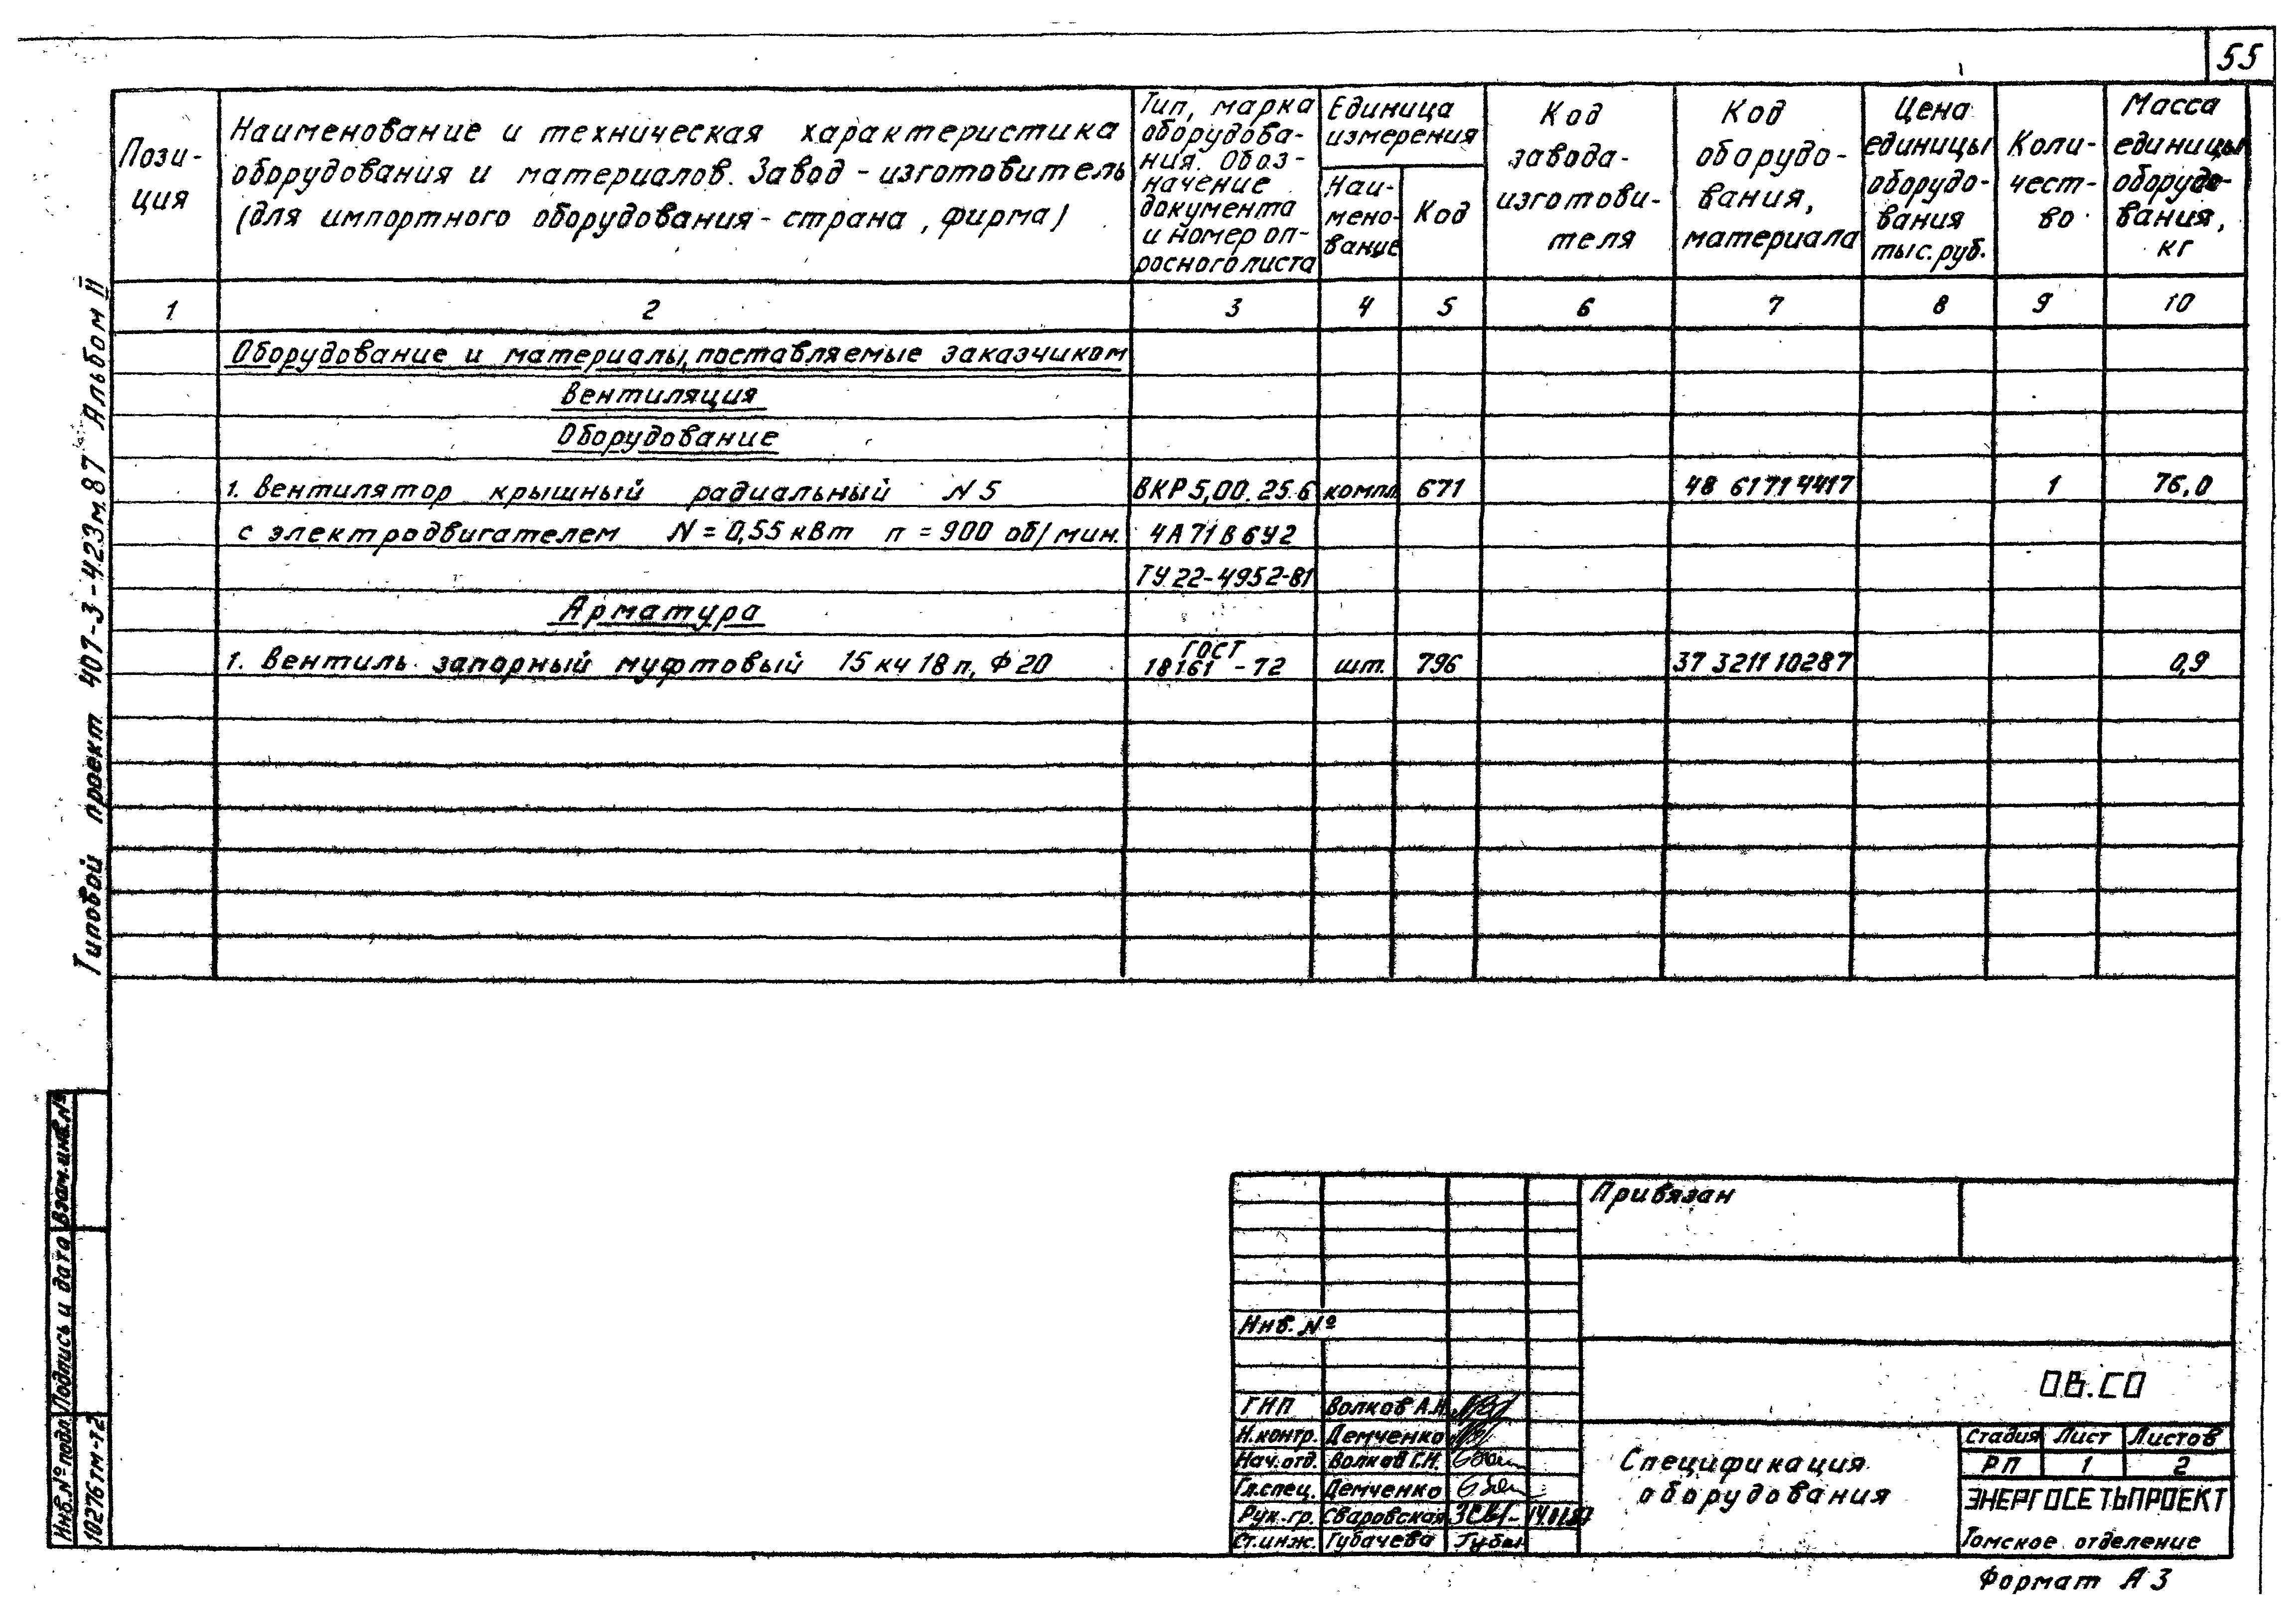 55
Пози-
ция
Наименование и техническая характеристика
оборудования и материалов. Завод-изготовитель
(для импортного оборудования-страна, фирма)
Тип, марка
оборудова-
ния. Обоз-
начение
документа
и номер оп-
росного листа
Единица
измерения
Наи-
мено-
вание
Код
Код
завода-
изготови-
теля
Код
оборудо-
вания,
материала
Цена
единицы
оборудо-
вания
тыс. руб.
Коли-
чест-
во
Масса
единицы
оборудо-
вания,
кг
1 2 3 4 5 6 7 8 9 10
Оборудование и материалы, поставляемые заказчиком
Вентиляция
Оборудование
1. Вентилятор крышный радиальный N5 ВКР5,00.25.6 компл. 671 48 6171 4417 1 76,0
с электродвигателем N = 0,55 кВт п = 900 об/мин. 4А71В6У2
ТУ 22-4952-81
Арматура
1. Вентиль запорный муфтовый 15 кч 18 п, Ф 20 ГОСТ 18161 - 72 шт. 796 37 3211 10287 0,9
Типовой проект 407-3-423м.87 Альбом II
Взам.инв.№
Подпись и дата
Инв.№ подл.
10276тм-т2
Привязан
Инв. №
ОВ.СО
ГИП Волков А.Н.
Н.контр. Демченко
Нач.отд. Волков Г.Н.
Гл.спец. Демченко
Рук.гр. Сваровская
Ст.инж. Губачева
Спецификация
оборудования
Стадия Лист Листов
РП 1 2
ЭНЕРГОСЕТЬПРОЕКТ
Томское отделение
Формат А3